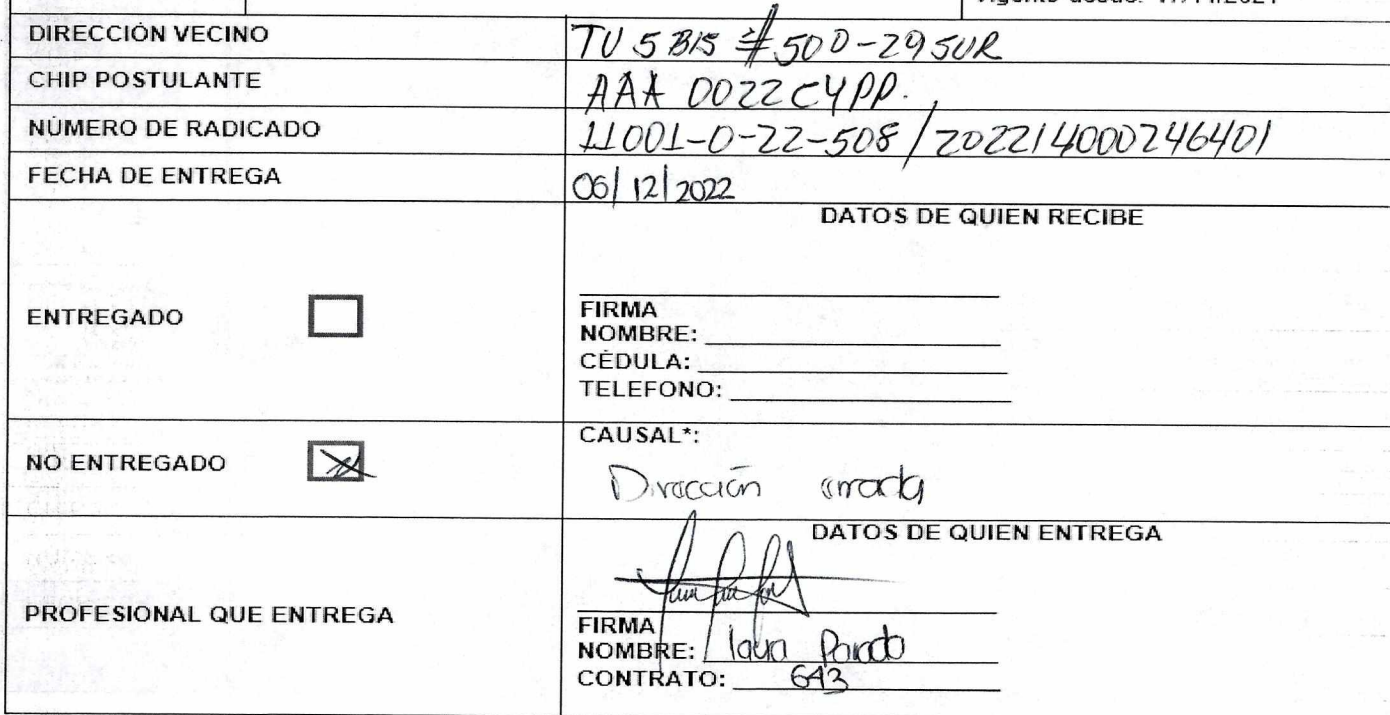 DIRECCIÓN VECINO
TV 5 BIS # 50D-29 SUR
CHIP POSTULANTE
AAA 0022CYPP.
NÚMERO DE RADICADO
11001-0-22-508 / 202214000246401
FECHA DE ENTREGA
06/12/2022
DATOS DE QUIEN RECIBE
ENTREGADO
FIRMA
NOMBRE:
CÉDULA:
TELEFONO:
NO ENTREGADO
CAUSAL*:
Dirección errada
DATOS DE QUIEN ENTREGA
PROFESIONAL QUE ENTREGA
FIRMA
NOMBRE: laura Pardo
CONTRATO: 643